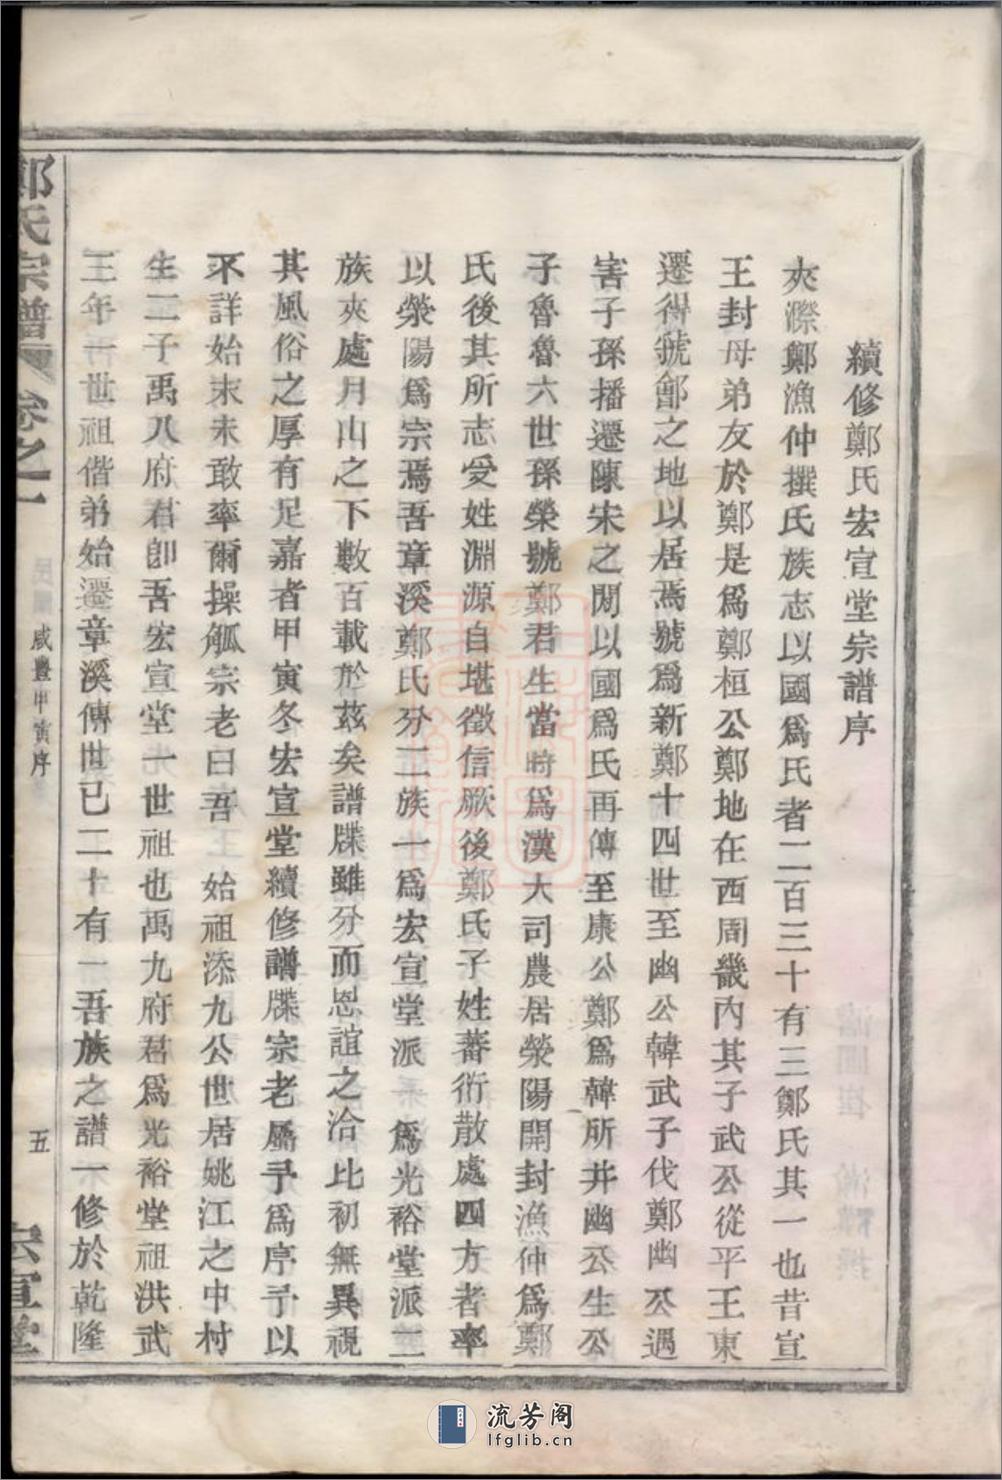 續修鄭氏宏宣堂宗譜序
夾漈鄭漁仲撰氏族志以國爲氏者二百三十有三鄭氏其一也昔宣
王封母弟友於鄭是爲鄭桓公鄭地在西周畿內其子武公從平王東
遷得虢鄶之地以居焉號爲新鄭十四世至幽公韓武子伐鄭幽公遇
害子孫播遷陳宋之閒以國爲氏再傳至康公鄭爲韓所并幽公生公
子魯魯六世孫榮號鄭君生當時爲漢大司農居滎陽開封漁仲爲鄭
氏後其所志受姓淵源自堪徵信厥後鄭氏子姓蕃衍散處四方者率
以滎陽爲宗焉吾章溪鄭氏分二族一爲宏宣堂派一爲光裕堂派二
族夾處月山之下數百載於茲矣譜牒雖分而恩誼之洽比初無異視
其風俗之厚有足嘉者甲寅冬宏宣堂續修譜牒宗老屬予爲序予以
不詳始末未敢率爾操觚宗老曰吾 始祖添九公世居姚江之中村
生二子禹八府君卽吾宏宣堂一世祖也禹九府君爲光裕堂祖洪武
三年一世祖偕弟始遷章溪傳世已二十有一吾族之譜一修於乾隆
鄭氏宗譜 卷之一 咸豐甲寅序 五 宏宣堂
流芳阁
lfglib.cn